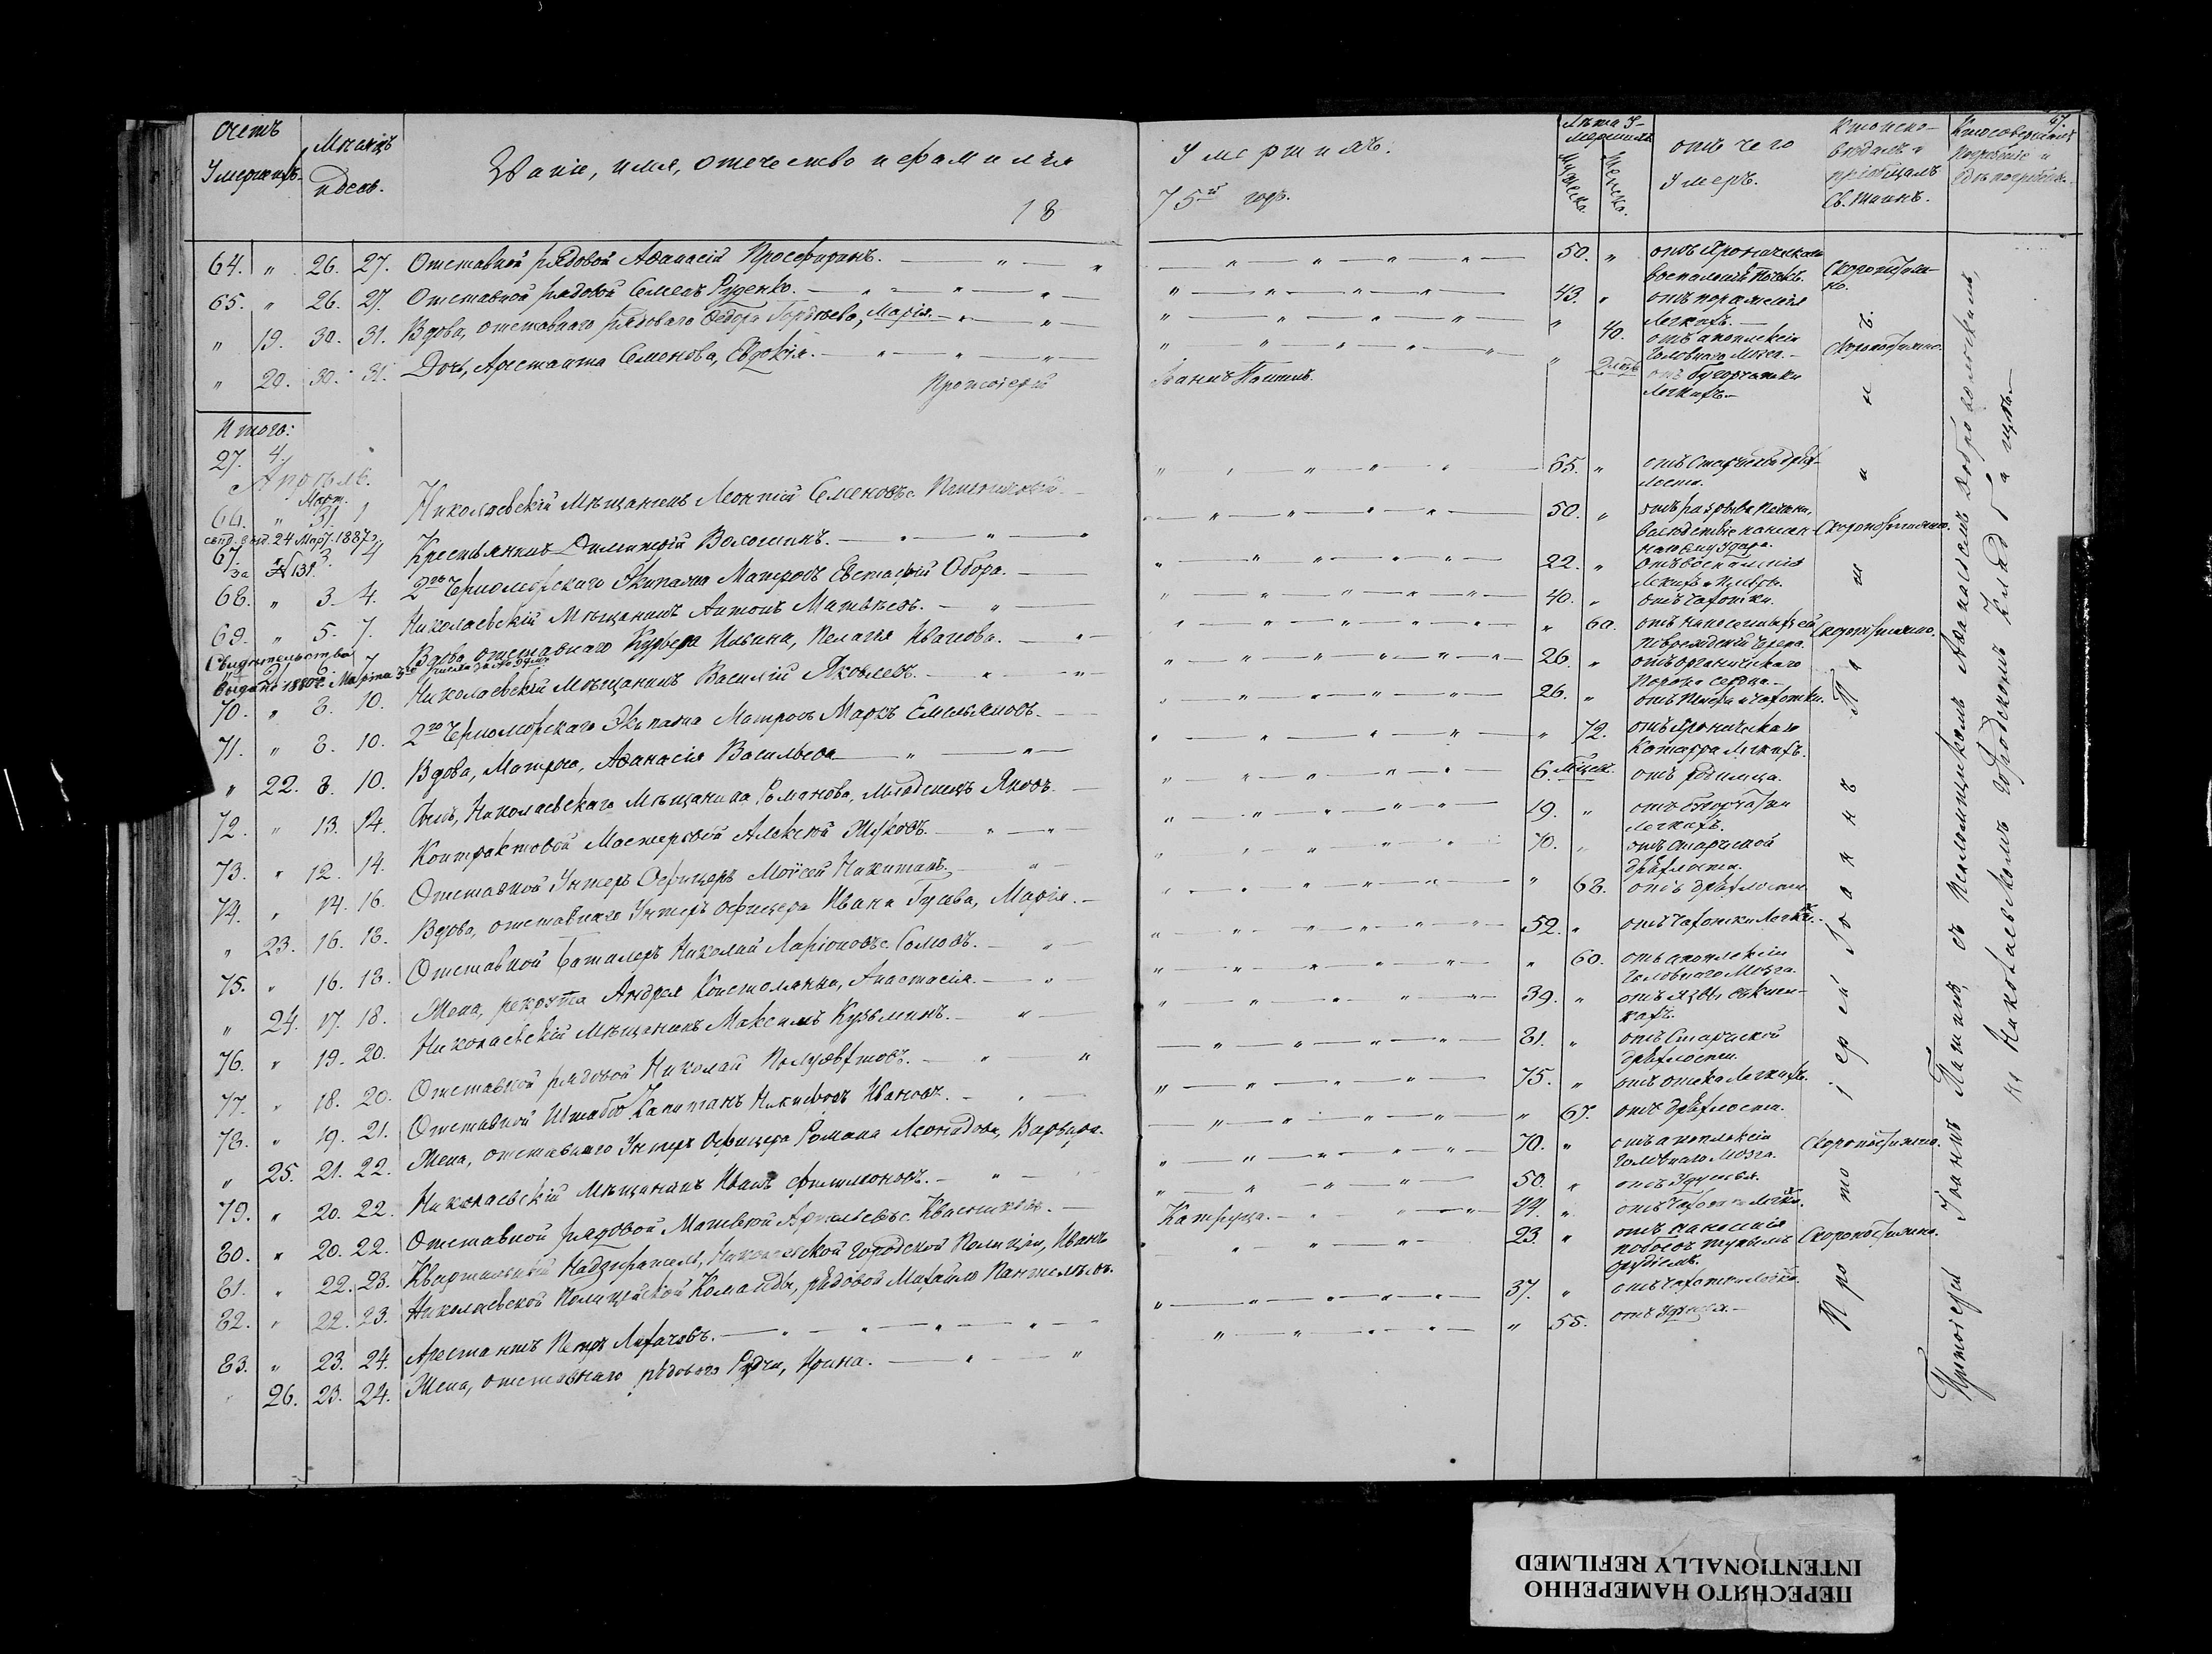 Счетъ Умершихъ.
Мѣсяцъ и день.
Званіе, имя, отечество и фамилія
Умершихъ.
18
75й годъ.
Лѣта Умершихъ
Мужеска. Женска.
отъ чего умеръ.
Кто исповѣдалъ и пріобщалъ Св. Таинъ.
Кто совершалъ погребеніе и гдѣ погребены.
47.
64. " 26. 27. Отставной рядовой Аѳанасій Просфиринъ. 50. " отъ хроническаго воспаленія почекъ. Скоропостижно.
65. " 26. 27. Отставной рядовой Семенъ Руденко. 43. " отъ пораженія легкихъ.
" 19. 30. 31. Вдова, отставнаго рядоваго Ѳедора Гордѣева, Марія. " 40. отъ апоплексіи головнаго мозга. Скоропостижно.
" 20. 30. 31. Дочь, Арестанта Семенова, Евдокія. " 2 отъ бугорчатки легкихъ.
Протоіерей Іоаннъ
Итого:
27. 4.
Апрѣль.
Март.
66. " 31. 1 Николаевскій Мѣщанинъ Леонтій Семеновъ 65. " отъ старческой дряхлости.
24 Март. 1887 г.
за № 131.
67. 3. 4 Крестьянинъ Димитрій Волошинъ. 50. " отъ разрыва печени, вслѣдствіе нанесеннаго ему удара. Скоропостижно.
68. " 3. 4. 2го Черноморскаго Экипажа Матросъ Евстафій Обора. 22. " отъ воспаленія легкихъ и плевры.
69. " 5. 7. Николаевскій Мѣщанинъ Антонъ Матвѣевъ. 40. " отъ чахотки.
Свидѣтельство
" 21. 6. 7. Вдова отставнаго Курьера Ильина, Пелагія Иванова. " 60. отъ нанесенныхъ ей поврежденій черепа. Скоропостижно.
выдано 1880 г. Марта
70. " 8. 10. Николаевскій Мѣщанинъ Василій Яковлевъ. 26. " отъ органическаго порока сердца.
71. " 8. 10. 2го Черноморскаго Экипажа Матросъ Маркъ Емельяновъ. 26. " отъ чахотки.
" 22. 8. 10. Вдова, Матроса, Аѳанасія Васильева " 72. отъ хроническаго катарра легкихъ.
72. " 13. 14. Сынъ, Николаевскаго Мѣщанина Романова, младенецъ Яковъ. 6 мѣсяц. отъ родимца.
73. " 12. 14. Контрактовой Мастеровой Алексѣй Жуковъ. 19. " отъ бугорчатки легкихъ.
74. " 14. 16. Отставной Унтеръ Офицеръ Моѵсей Никитинъ. 70. " отъ старческой дряхлости.
" 23. 16. 18. Вдова, отставнаго Унтеръ офицера Ивана Гусева, Марія. " 68. отъ дряхлости
75. " 16. 18. Отставной Баталеръ Николай Ларіоновъ Сомовъ. 52. " отъ чахотки легк.
" 24. 17. 18. Жена, рекрута Андрея Анастасія. " 60. отъ апоплексіи головнаго мозга.
76. " 19. 20. Николаевскій Мѣщанинъ Максимъ Кузьминъ. 39. " отъ язвы
77. " 18. 20. Отставной рядовой Николай 81. " отъ старческой дряхлости.
78. " 19. 21. Отставной Штабсъ Капитанъ Никифоръ Ивановъ. 75. " отъ отека легкихъ.
" 25. 21. 22. Жена, отставнаго Унтеръ Офицера Романа Леонидова, Варвара. " 67. отъ дряхлости.
79. " 20. 22. Николаевскій Мѣщанинъ Иванъ Филимоновъ. 70. " отъ апоплексіи головнаго мозга. Скоропостижно.
80. " 20. 22. Отставной рядовой Матвѣй 50. " отъ удушья.
81. " 22. 23. Квартальный Надзиратель, Николаевской городской Полиціи, Иванъ Катруца. 44. " отъ чахотки легк.
82. " 22. 23. Николаевской Полицейской Команды, рядовой Михайло Пантелѣевъ. 23. " отъ нанесенія побоевъ тупымъ орудіемъ. Скоропостижно.
83. " 23. 24. Арестантъ Петръ Лихачовъ. 37. " отъ чахотки легк.
" 26. 23. 24. Жена, отставнаго рядоваго Ирина. " 55. отъ удушья.
Протоіерей Іоаннъ
Протоіерей Іоаннъ съ Псаломщикомъ Аѳанасіемъ Добровольскимъ,
на Николаевскомъ городскомъ кладбищѣ.
ПЕРЕСНЯТО НАМЕРЕННО
INTENTIONALLY REFILMED